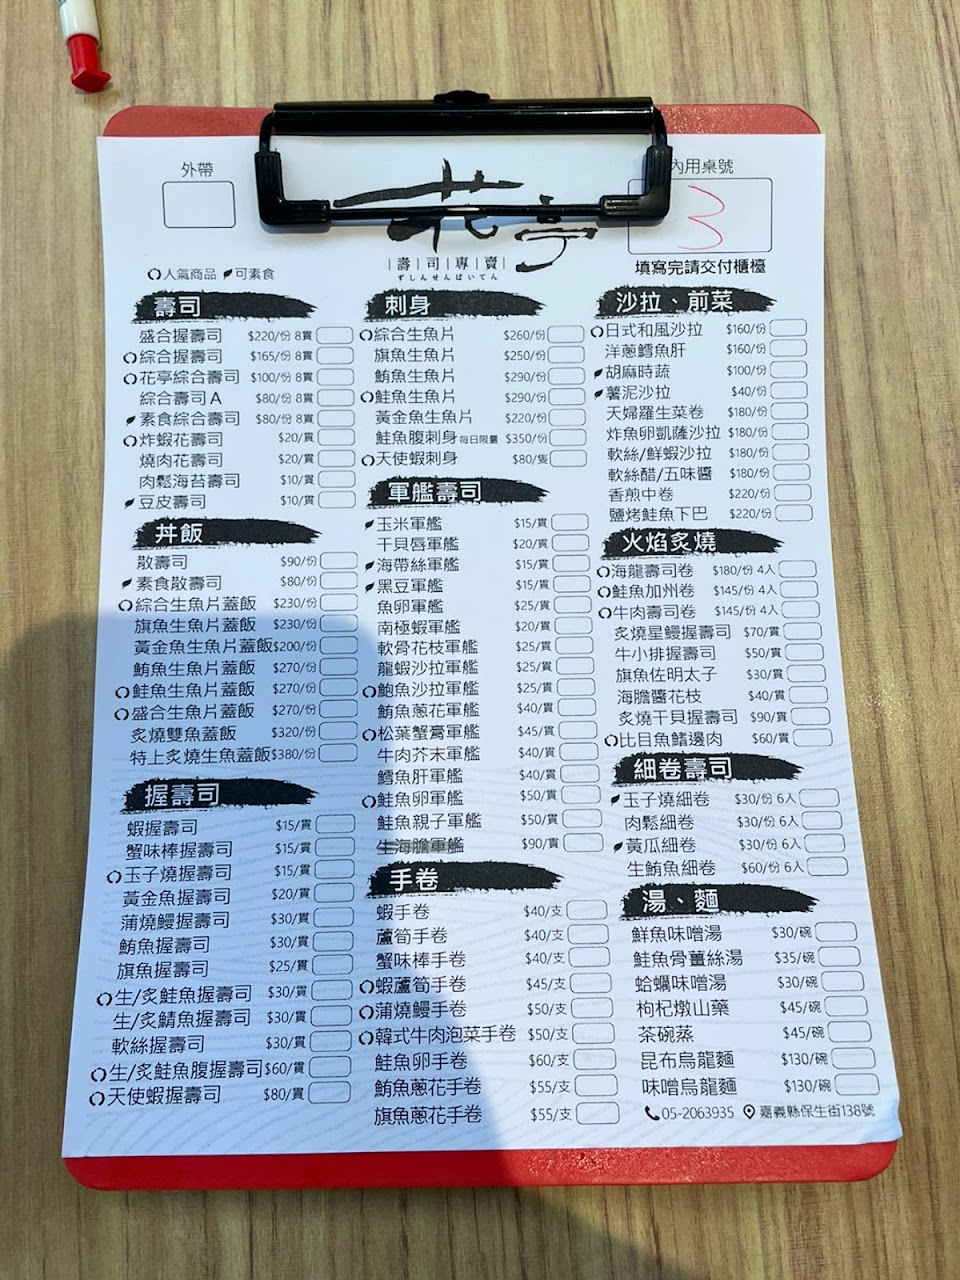 外帶
花亭
壽司專賣
ずしんせんばいてん
內用桌號
3
填寫完請交付櫃檯
人氣商品 可素食
壽司
盛合握壽司 $220/份 8貫
綜合握壽司 $165/份 8貫
花亭綜合壽司 $100/份 8貫
綜合壽司A $80/份 8貫
素食綜合壽司 $80/份 8貫
炸蝦花壽司 $20/貫
燒肉花壽司 $20/貫
肉鬆海苔壽司 $10/貫
豆皮壽司 $10/貫
丼飯
散壽司 $90/份
素食散壽司 $80/份
綜合生魚片蓋飯 $230/份
旗魚生魚片蓋飯 $230/份
黃金魚生魚片蓋飯 $200/份
鮪魚生魚片蓋飯 $270/份
鮭魚生魚片蓋飯 $270/份
盛合生魚片蓋飯 $270/份
炙燒雙魚蓋飯 $320/份
特上炙燒生魚蓋飯 $380/份
握壽司
蝦握壽司 $15/貫
蟹味棒握壽司 $15/貫
玉子燒握壽司 $15/貫
黃金魚握壽司 $20/貫
蒲燒鰻握壽司 $30/貫
鮪魚握壽司 $30/貫
旗魚握壽司 $25/貫
生/炙鮭魚握壽司 $30/貫
生/炙鯖魚握壽司 $30/貫
軟絲握壽司 $30/貫
生/炙鮭魚腹握壽司 $60/貫
天使蝦握壽司 $80/貫
刺身
綜合生魚片 $260/份
旗魚生魚片 $250/份
鮪魚生魚片 $290/份
鮭魚生魚片 $290/份
黃金魚生魚片 $220/份
鮭魚腹刺身 每日限量 $350/份
天使蝦刺身 $80/隻
軍艦壽司
玉米軍艦 $15/貫
干貝唇軍艦 $20/貫
海帶絲軍艦 $15/貫
黑豆軍艦 $15/貫
魚卵軍艦 $25/貫
南極蝦軍艦 $20/貫
軟骨花枝軍艦 $25/貫
龍蝦沙拉軍艦 $25/貫
鮑魚沙拉軍艦 $25/貫
鮪魚蔥花軍艦 $40/貫
松葉蟹膏軍艦 $45/貫
牛肉芥末軍艦 $40/貫
鱈魚肝軍艦 $40/貫
鮭魚卵軍艦 $50/貫
鮭魚親子軍艦 $50/貫
生海膽軍艦 $90/貫
手卷
蝦手卷 $40/支
蘆筍手卷 $40/支
蟹味棒手卷 $40/支
蝦蘆筍手卷 $45/支
蒲燒鰻手卷 $50/支
韓式牛肉泡菜手卷 $50/支
鮭魚卵手卷 $60/支
鮪魚蔥花手卷 $55/支
旗魚蔥花手卷 $55/支
沙拉、前菜
日式和風沙拉 $160/份
洋蔥鱈魚肝 $160/份
胡麻時蔬 $100/份
薯泥沙拉 $40/份
天婦羅生菜卷 $180/份
炸魚卵凱薩沙拉 $180/份
軟絲/鮮蝦沙拉 $180/份
軟絲醋/五味醬 $180/份
香煎中卷 $220/份
鹽烤鮭魚下巴 $220/份
火焰炙燒
海龍壽司卷 $180/份 4入
鮭魚加州卷 $145/份 4入
牛肉壽司卷 $145/份 4入
炙燒星鰻握壽司 $70/貫
牛小排握壽司 $50/貫
旗魚佐明太子 $30/貫
海膽醬花枝 $40/貫
炙燒干貝握壽司 $90/貫
比目魚鰭邊肉 $60/貫
細卷壽司
玉子燒細卷 $30/份 6入
肉鬆細卷 $30/份 6入
黃瓜細卷 $30/份 6入
生鮪魚細卷 $60/份 6入
湯、麵
鮮魚味噌湯 $30/碗
鮭魚骨薑絲湯 $35/碗
蛤蠣味噌湯 $30/碗
枸杞燉山藥 $45/碗
茶碗蒸 $45/碗
昆布烏龍麵 $130/碗
味噌烏龍麵 $130/碗
05-2063935 嘉義縣保生街138號